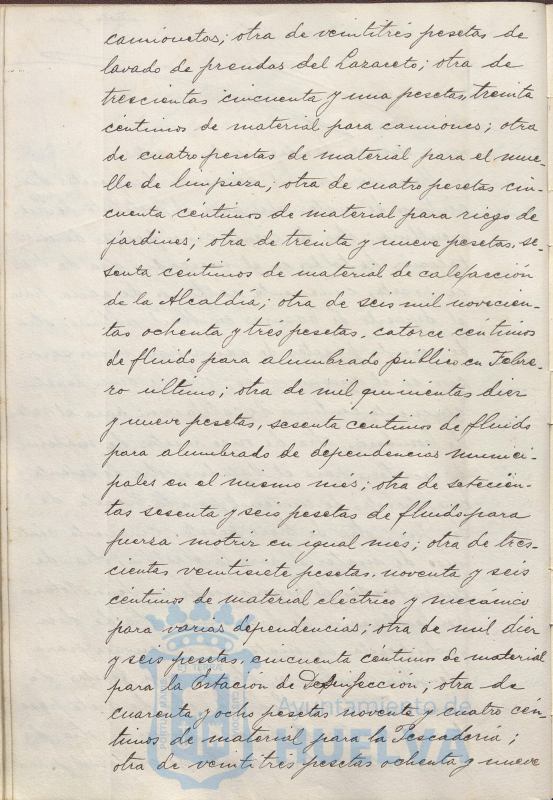 camionetas; otra de veintitrés pesetas de
lavado de prendas del Lazareto; otra de
trescientas cincuenta y una pesetas, treinta
céntimos de material para camiones; otra
de cuatro pesetas de material para el mue-
lle de limpieza; otra de cuatro pesetas cin-
cuenta céntimos de material para riego de
jardines; otra de treinta y nueve pesetas, se-
senta céntimos de material de calefacción
de la Alcaldía; otra de seis mil novecien-
tas ochenta y tres pesetas, catorce centimos
de fluido para alumbrado público en Febre-
ro último; otra de mil quinientas diez
y nueve pesetas, sesenta céntimos de fluido
para alumbrado de dependencias munici-
pales en el mismo més; otra de setecien-
tas sesenta y seis pesetas de fluido para
fuerza motriz en igual més; otra de tres-
cientas veintisiete pesetas, noventa y seis
céntimos de material eléctrico y mecánico
para varias dependencias; otra de mil diez
y seis pesetas, cincuenta céntimos de material
para la Estación de Desinfección; otra de
cuarenta y ocho pesetas noventa y cuatro cén-
timos de material para la Pescaderia;
otra de veintitres pesetas ochenta y nueve
Ayuntamiento de
HUELVA